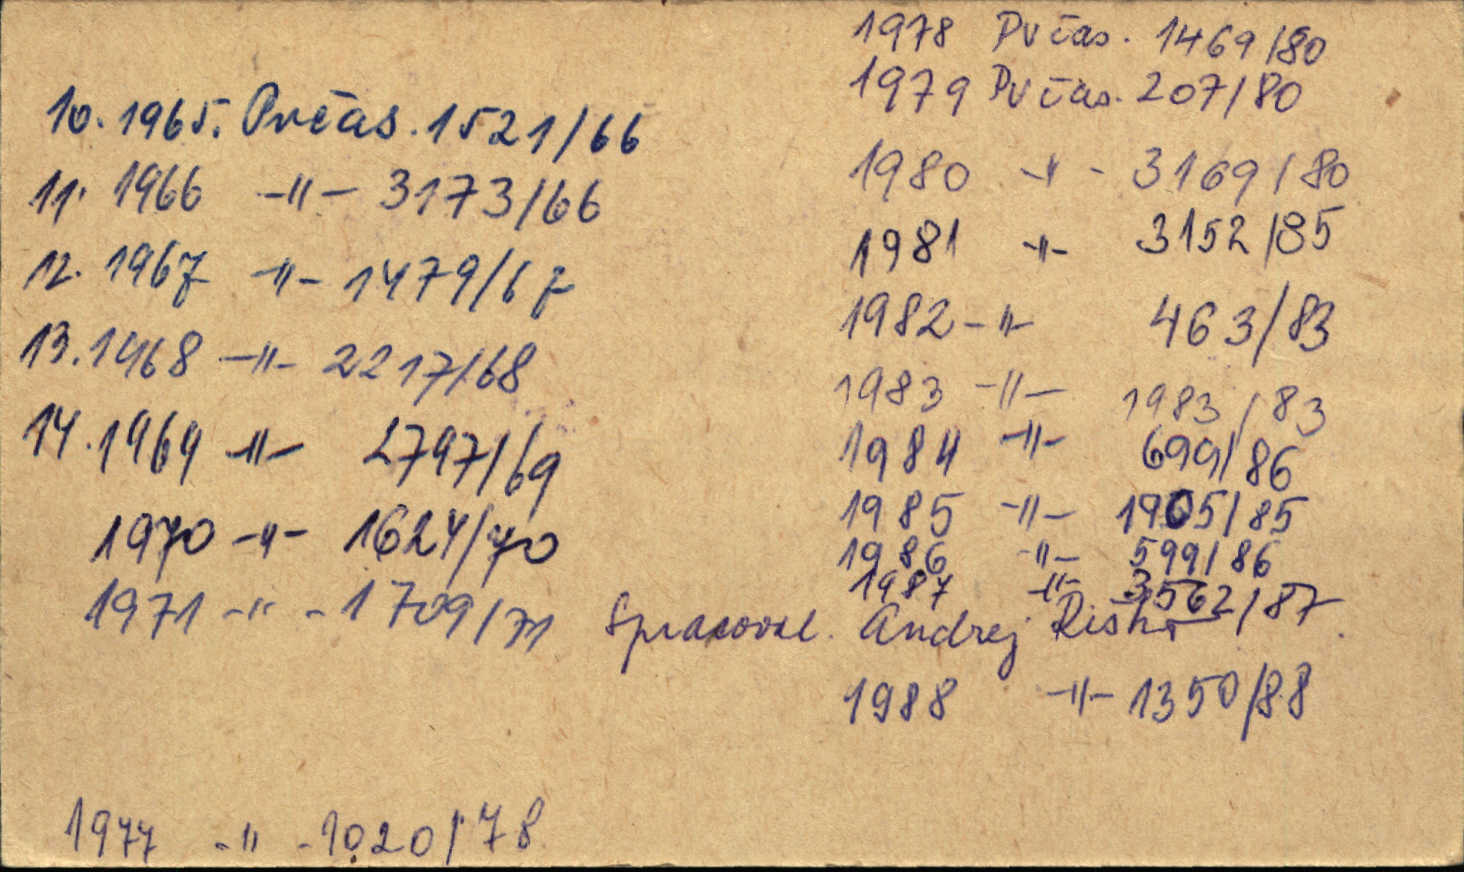 10. 1965. Pvčas. 1521/66
11. 1966 -"- 3173/66
12. 1967 -"- 1479/67
13. 1968 -"- 2217/68
14. 1969 -"- 2797/69
1970 -"- 1624/70
1971 -"- 1709/71
1977 -"- 1020/78
1978 Pvčas. 1469/80
1979 Pvčas. 207/80
1980 -"- 3169/80
1981 -"- 3152/85
1982 -"- 463/83
1983 -"- 1983/83
1984 -"- 699/86
1985 -"- 1905/85
1986 -"- 599/86
1987 -"- 3562/87
Spracoval. Andrej
1988 -"- 1350/88